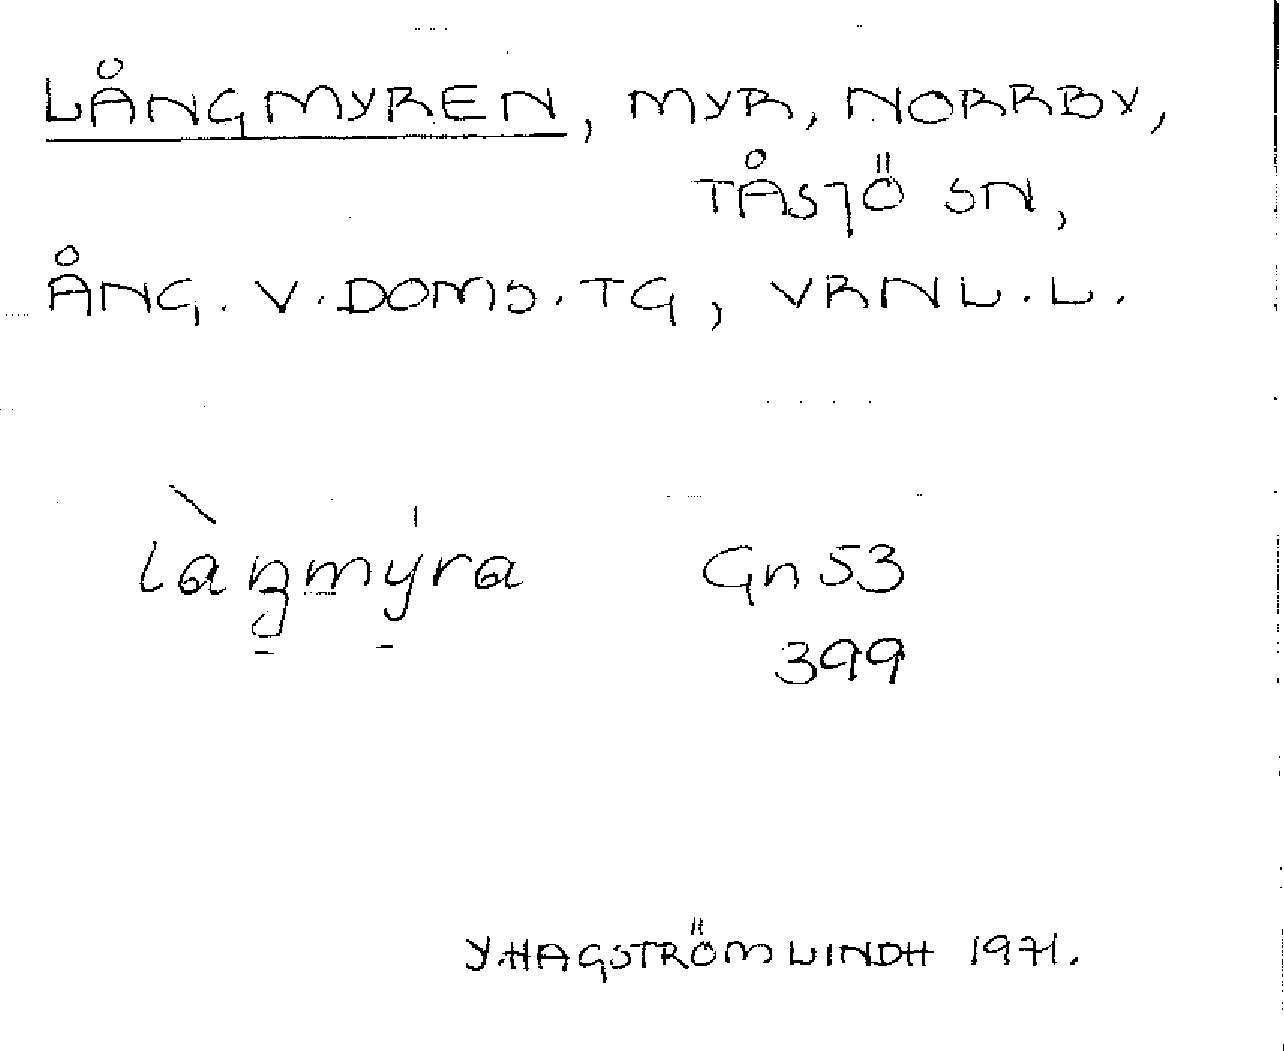 LÅNGMYREN, MYR, NORRBY,
TÅSJÖ SN,
ÅNG. V. DOMS. TG, VRNL. L.
làŋmýra Gn 53
399
Y. HAGSTRÖM LINDH 1971.